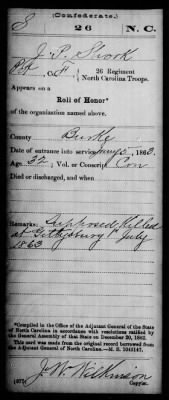 (Confederate.)
S 26 N. C.
J. P. Shook
Pvt, Co. F, 26 Regiment
North Carolina Troops.
Appears on a
Roll of Honor*
of the organization named above.
County Burke
Date of entrance into service 5, 1863.
Age 32, Vol. or Conscript Con
Died or discharged, and when
Remarks: Supposed, Killed
at Gettysburg July
1863
*Compiled in the Office of the Adjutant General of the State
of North Carolina in accordance with resolutions ratified by
the General Assembly of that State on December 20, 1862.
This card was made from the original record borrowed from
the Adjutant General of North Carolina—M. S. 1043147.
J. W. Wilkinson
(677) Copyist.